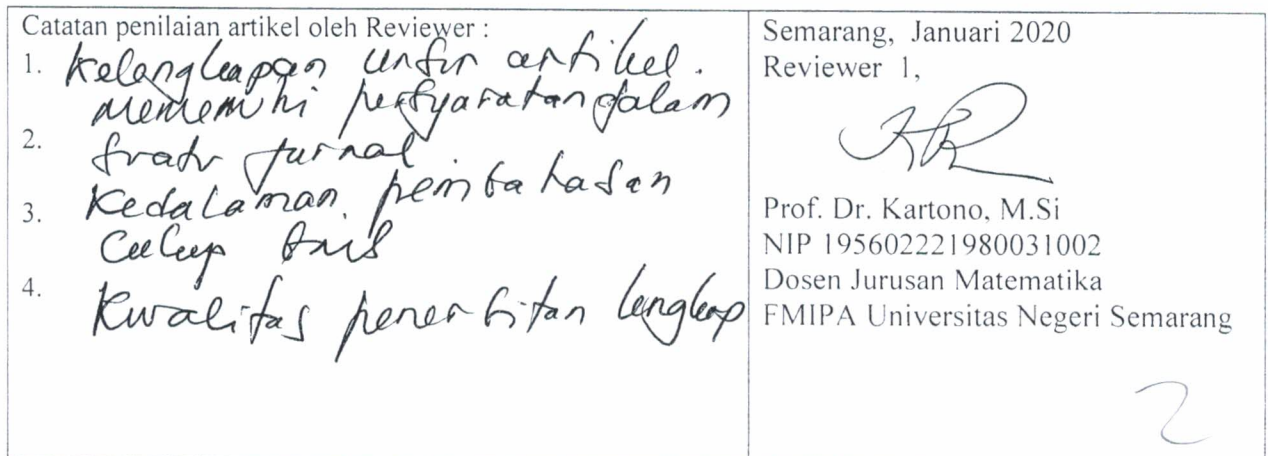 Catatan penilaian artikel oleh Reviewer :
1. Kelengkapan unsur artikel.
memenuhi persyaratan dalam
2.
suatu jurnal
Kedalaman pembahasan
3.
Cukup
4.
Kwalitas penerbitan lengkap
Semarang, Januari 2020
Reviewer 1,
Prof. Dr. Kartono, M.Si
NIP 195602221980031002
Dosen Jurusan Matematika
FMIPA Universitas Negeri Semarang
2